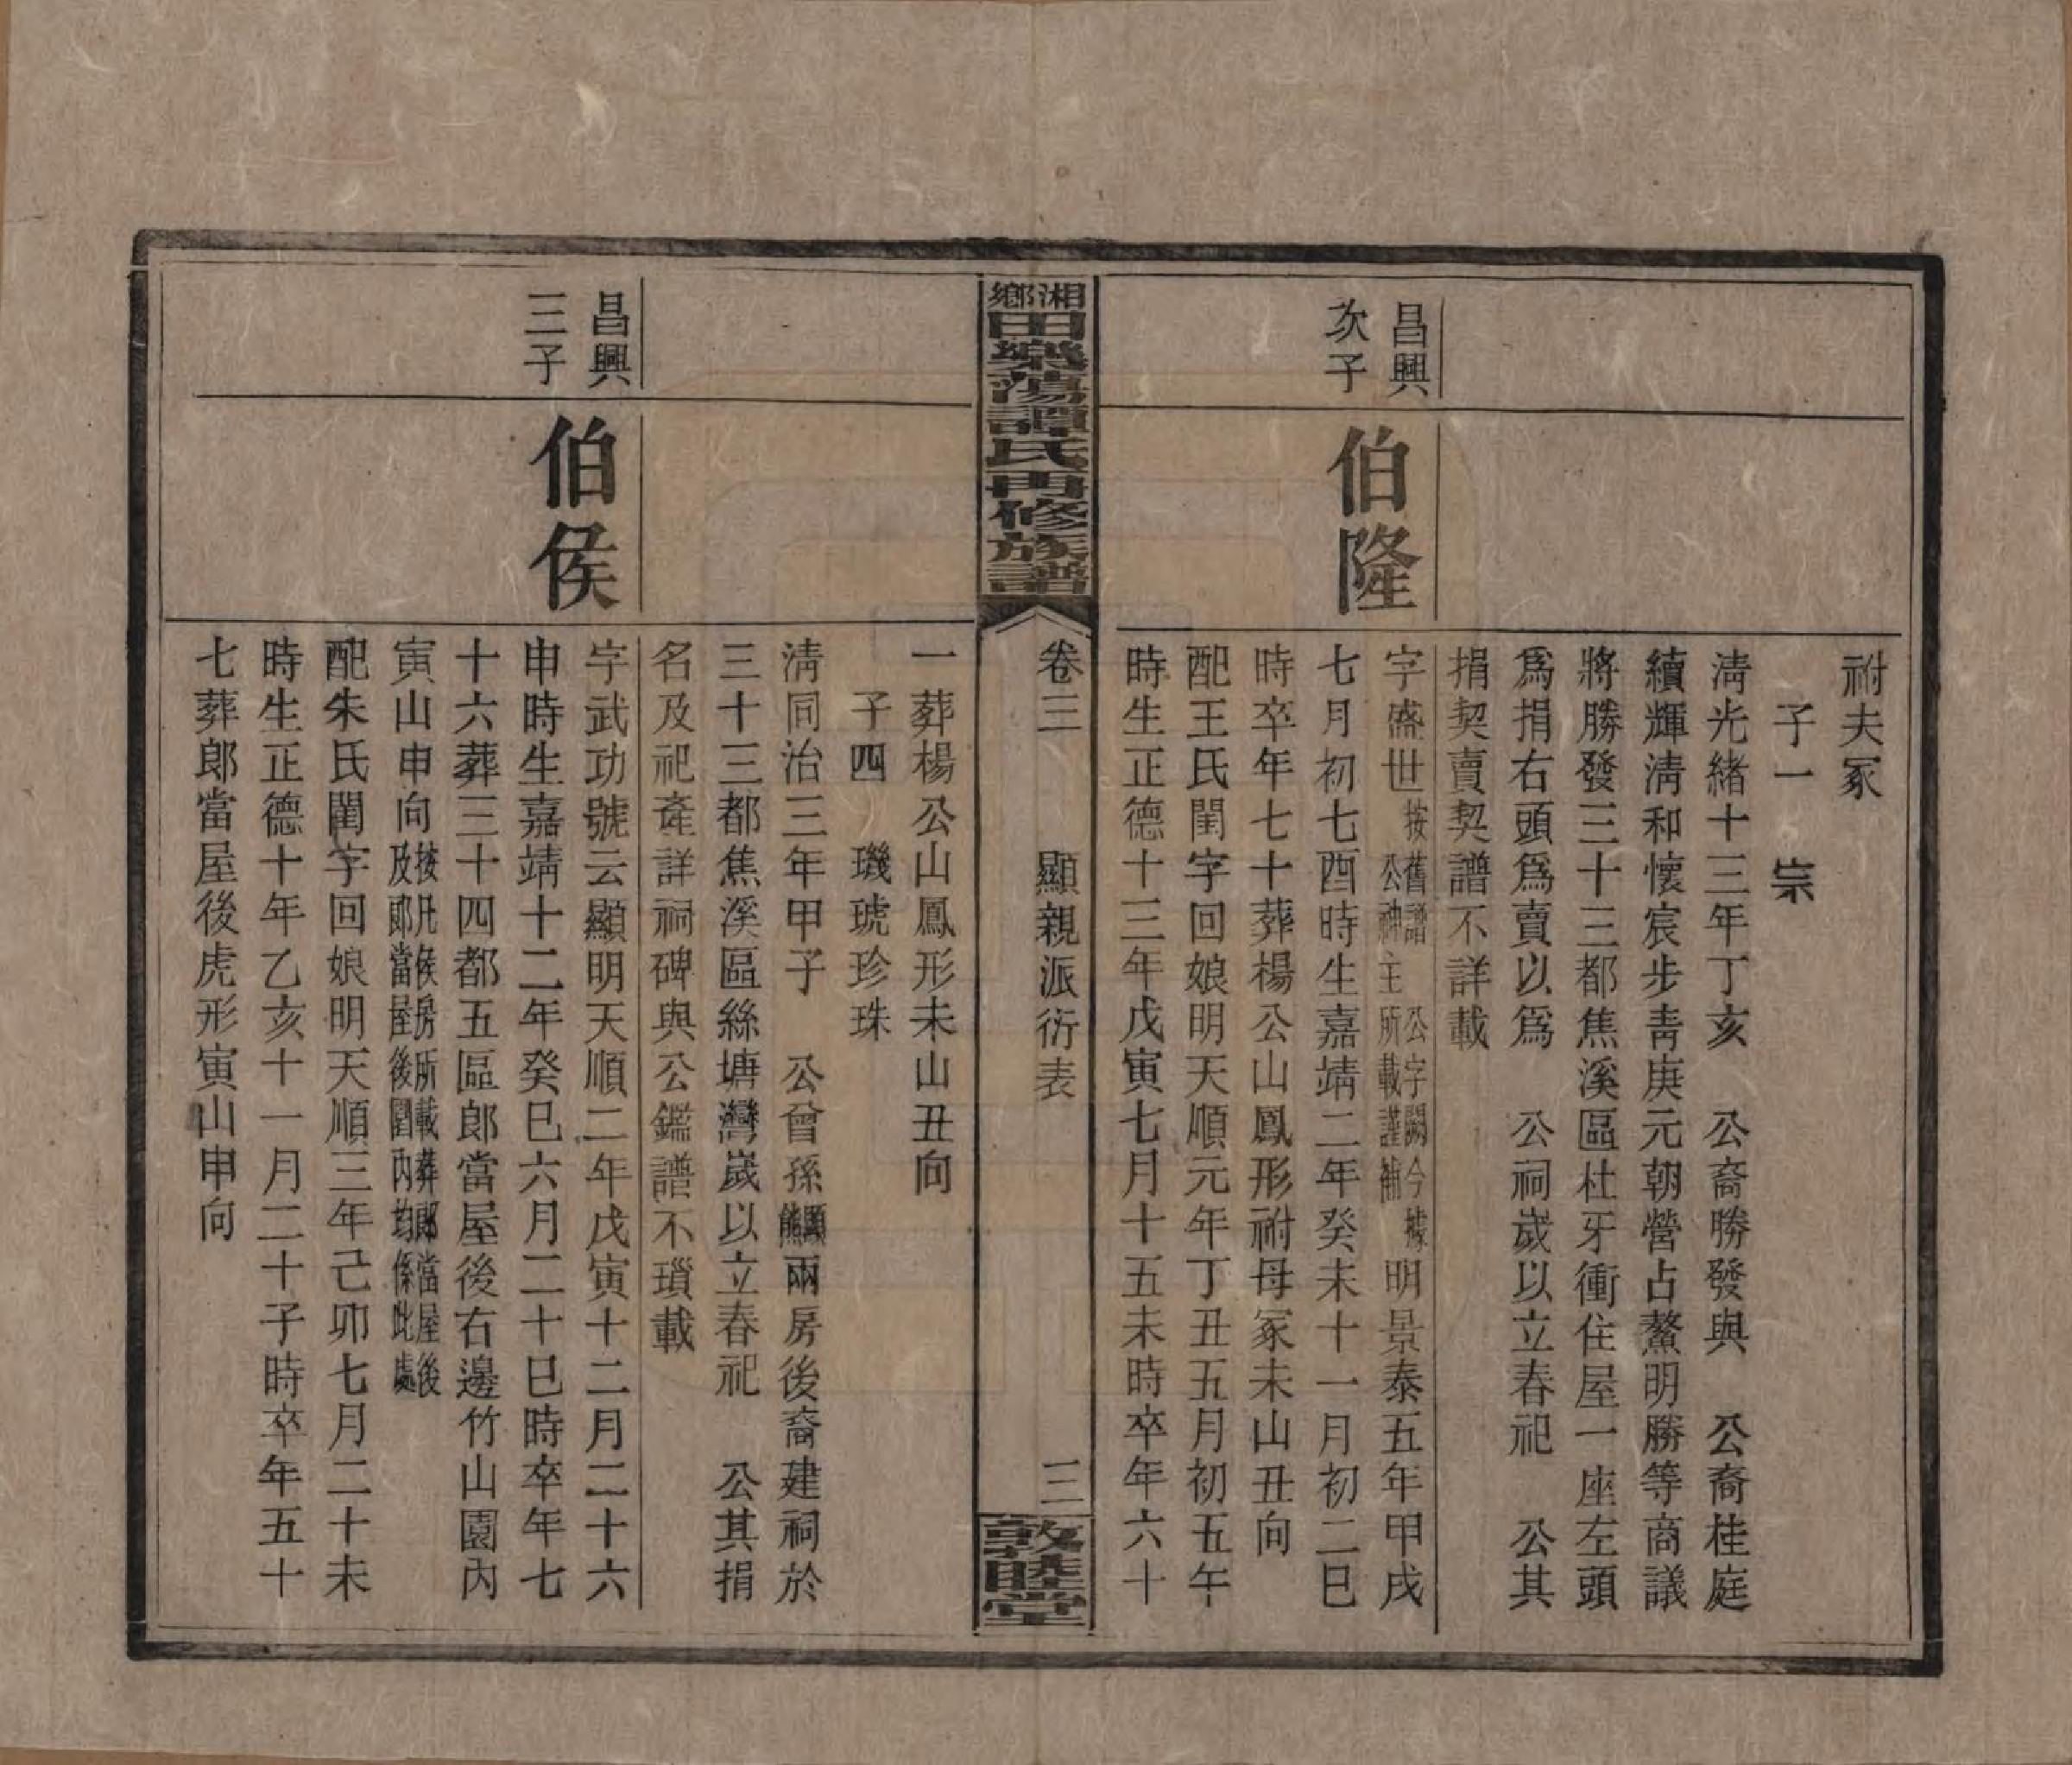 祔夫冢
子一　崇
淸光緒十三年丁亥　公裔勝發與　公裔桂庭
續輝淸和懷宸步靑庚元朝營占鰲明勝等商議
將勝發三十三都焦溪區杜牙衝住屋一座左頭
爲捐右頭爲賣以爲　公祠歲以立春祀　公其
捐契賣契譜不詳載
昌興
次子
伯隆
字盛世按舊譜　公字闕今據公神主所載謹補明景泰五年甲戌
七月初七酉時生嘉靖二年癸未十一月初二巳
時卒年七十葬楊公山鳳形祔母冢未山丑向
配王氏閨字回娘明天順元年丁丑五月初五午
時生正德十三年戊寅七月十五未時卒年六十
湘鄉田樂蕩譚氏再修族譜
卷三　顯親派衍表　三
敦睦堂
一葬楊公山鳳形未山丑向
子四　璣琥珍珠
淸同治三年甲子　公曾孫顯熊兩房後裔建祠於
三十三都焦溪區絲塘灣歲以立春祀　公其捐
名及祀產詳祠碑與公鑑譜不瑣載
昌興
三子
伯侯
字武功號云顯明天順二年戊寅十二月二十六
申時生嘉靖十二年癸巳六月二十巳時卒年七
十六葬三十四都五區郎當屋後右邊竹山園內
寅山申向按凡侯房所載葬郎當屋後及郎當屋後園內均係此處
配朱氏閨字回娘明天順三年己卯七月二十未
時生正德十年乙亥十一月二十子時卒年五十
七葬郎當屋後虎形寅山申向